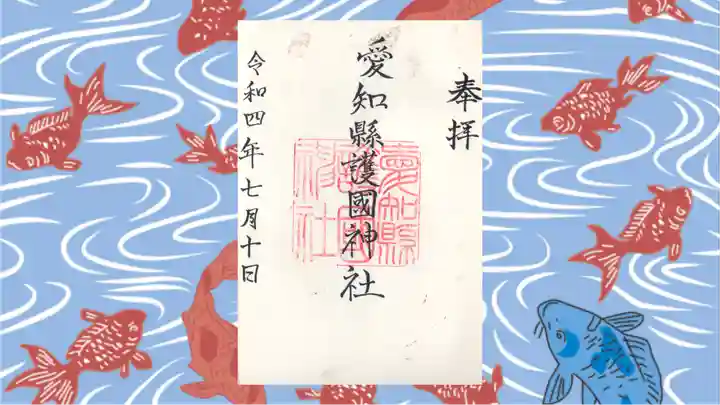 奉拝
愛知縣護國神社
愛知縣護國神社
令和四年七月十日